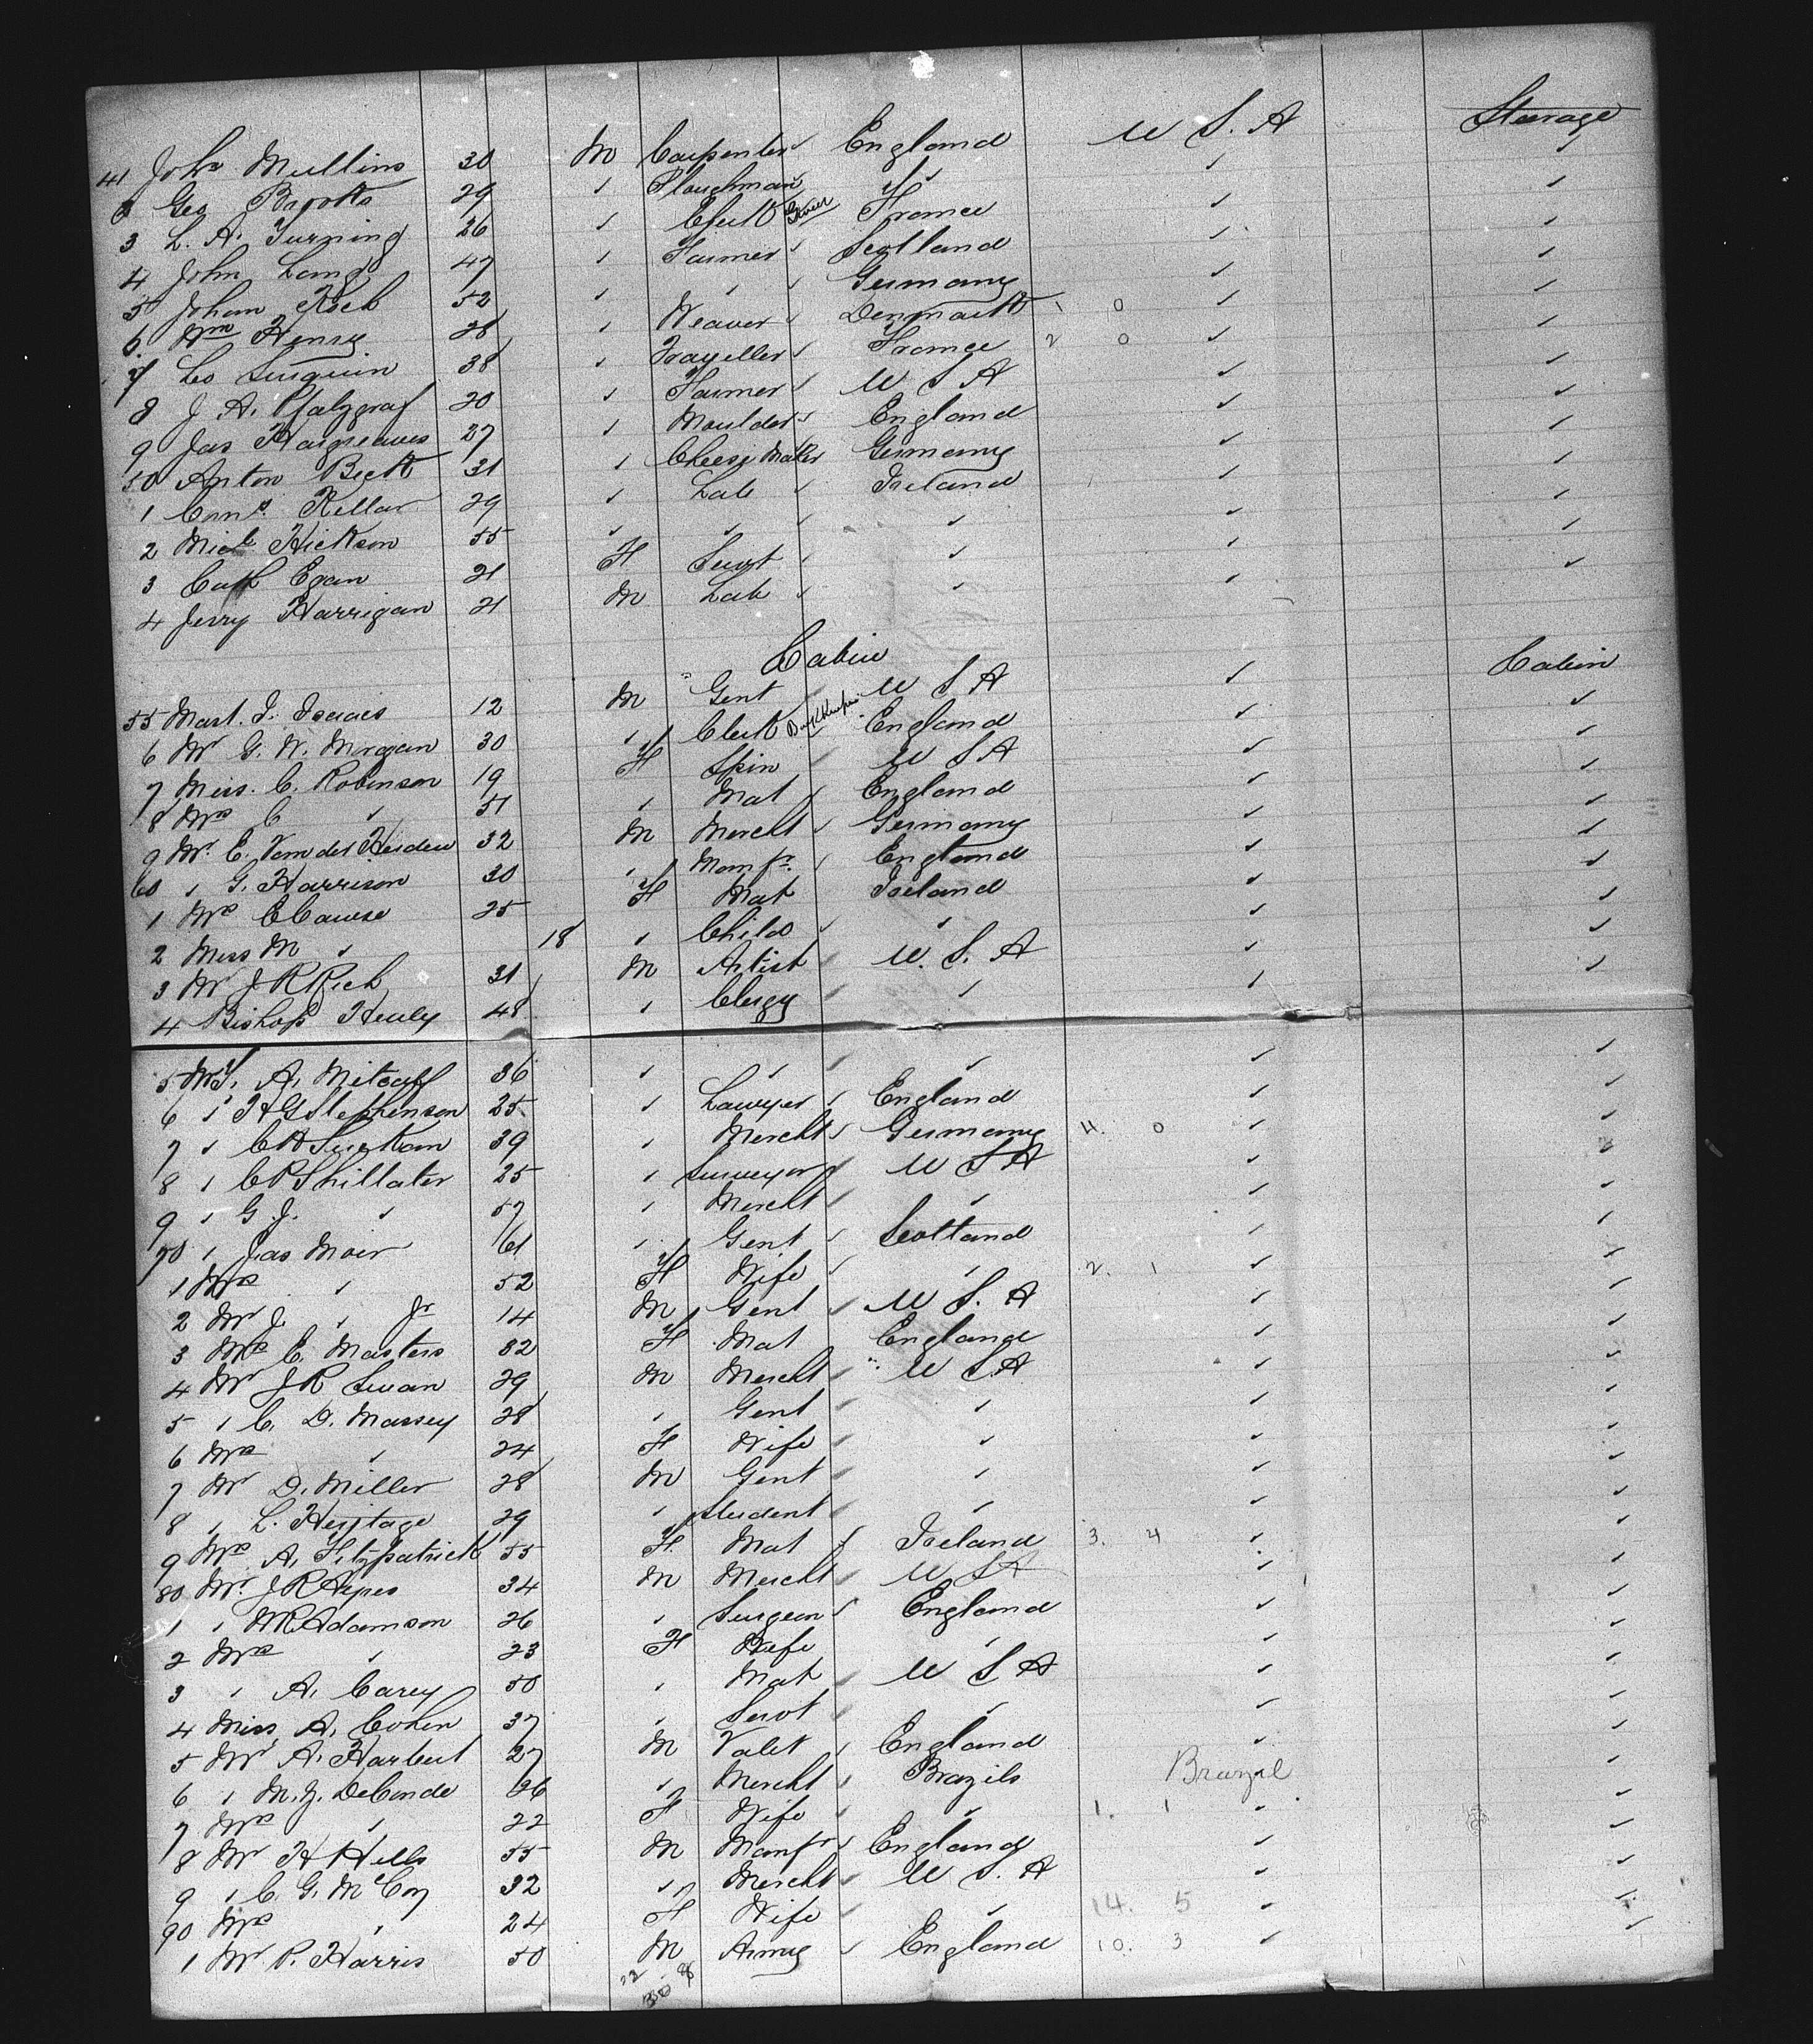 41 John Mullins 30 M Carpenter England U S. A Steerage
2 Geo Brooks 29 ✓ Ploughman ✓ ✓ ✓ ✓
3 L. A. Turning 26 ✓ Clerk France ✓ ✓
4 John Lang 47 ✓ Farmer ✓ Scotland ✓ ✓
5 Johan Koch 52 ✓ ✓ ✓ Germany ✓ ✓
6 Wm Henry 28 ✓ Weaver ✓ Denmark 1 0 ✓ ✓
7 Leo 38 ✓ Traveller ✓ France 2 0 ✓ ✓
8 J A. Pfalzgraf 20 ✓ Farmer ✓ U S A ✓ ✓
9 Jas Hargreaves 27 ✓ Moulder ✓ England ✓ ✓
50 Anton Beck 31 ✓ Cheese Maker Germany ✓ ✓
1 Corns. Kellar 29 ✓ Lab ✓ Ireland ✓ ✓
2 Michl Hickson 55 ✓ ✓ ✓ ✓ ✓ ✓
3 Cath Egan 21 F Servt ✓ ✓ ✓ ✓
4 Jerry Harrigan 21 M Lab ✓ ✓ ✓ ✓
Cabin
55 Mast. J. Isaacs 12 M Gent ✓ U S A ✓ Cabin
6 Mr G. W. Morgan 30 ✓ Clerk BookKeeper England ✓ ✓
7 Miss. C. Robinson 19 F Spin ✓ U S A ✓ ✓
8 Mrs C ✓ 51 ✓ Mat ✓ England ✓ ✓
9 Mr. E. Van der Heiden 32 M Mercht ✓ Germany ✓ ✓
60 ✓ G. Harrison 30 ✓ Manfr. ✓ England ✓ ✓
1 Mrs C Cawse 25 F Mat Ireland ✓ ✓
2 Miss M ✓ 18 ✓ Child ✓ ✓ ✓ ✓
3 Mr J R Rich 31 M Artist ✓ U. S. A ✓ ✓
4 Bishop Healy 48 ✓ Clergy ✓ ✓ ✓ ✓
5 Mr T. A. Metcalf 36 ✓ ✓ ✓ ✓ ✓ ✓
6 ✓ H G Stephenson 25 ✓ Lawyer ✓ England ✓ ✓
7 ✓ C A 39 ✓ Mercht ✓ Germany 4. 0 ✓ ✓
8 ✓ C P Shillater 25 ✓ Surveyor ✓ U S A ✓ ✓
9 ✓ G J. ✓ 57 ✓ Mercht ✓ ✓ ✓ ✓
70 ✓ Jas Moir 61 ✓ Gent ✓ Scotland ✓ ✓
1 Mrs ✓ 52 F Wife ✓ ✓ 2. 1 ✓ ✓
2 Mr J. ✓ Jr 14 M Gent ✓ U S. A ✓ ✓
3 Mrs C. Masters 32 F Mat England ✓ ✓
4 Mr J R Swan 29 M Mercht U S.A ✓ ✓
5 ✓ C. D. Massey 28 ✓ Gent ✓ ✓ ✓ ✓
6 Mrs ✓ 24 F Wife ✓ ✓ ✓ ✓
7 Mr D. Miller 28 M Gent ✓ ✓ ✓ ✓
8 ✓ L. Heritage 29 ✓ Student ✓ ✓ ✓ ✓
9 Mrs A. Fitzpatrick 55 F Mat ✓ Ireland 3. 4 ✓ ✓
80 Mr. J R 34 M Mercht ✓ U S A ✓ ✓
1 ✓ W R Adamson 26 ✓ Surgeon ✓ England ✓ ✓
2 Mrs ✓ 23 F Wife ✓ ✓ ✓
3 ✓ A. Carey 50 ✓ Mat ✓ U S. A ✓ ✓
4 Miss A. Cohen 37 ✓ Servt ✓ ✓ ✓ ✓
5 Mr A. Harbert 27 M Valet ✓ England ✓ ✓
6 ✓ M. Z. DeConde 26 ✓ Mercht ✓ Brazils Brazil ✓
7 Mrs ✓ 22 F Wife ✓ ✓ 1. 1 ✓ ✓
8 Mr H Hills 55 M Manfr ✓ England ✓ ✓
9 ✓ C. G. McCoy 32 ✓ Mercht ✓ U S. A ✓ ✓
90 Mrs ✓ 24 F Wife ✓ ✓ 14. 5 ✓ ✓
1 Mr P. Harris 50 M Army ✓ England 10. 3 ✓ ✓